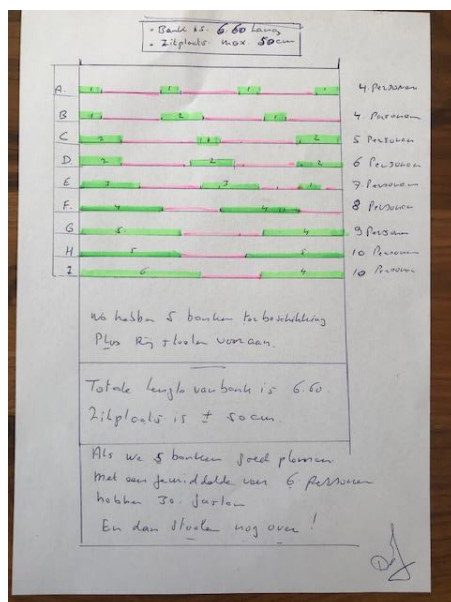 • Bank is 6.60 Lang
• Zitplaats max. 50cm
A. 1 1 1 1 4. Personen
B 1 2 1 4. Personen
C 2 1 2 5 Personen
D. 2 2 2 6 Personen
E 3 3 1 7. Personen
F. 4 4 8 Personen
G 5. 4 9 Person
H 5 5 10 Personen
I 6 4 10 Personen
We hebben 5 banken ter beschikking
Plus Rij stoelen vooraan.
Totale lengte van bank is 6.60.
Zitplaats is ± 50cm.
Als we 5 banken goed plannen
met een gemiddelde van 6 personen
hebben 30. gasten
En dan stoelen nog over!